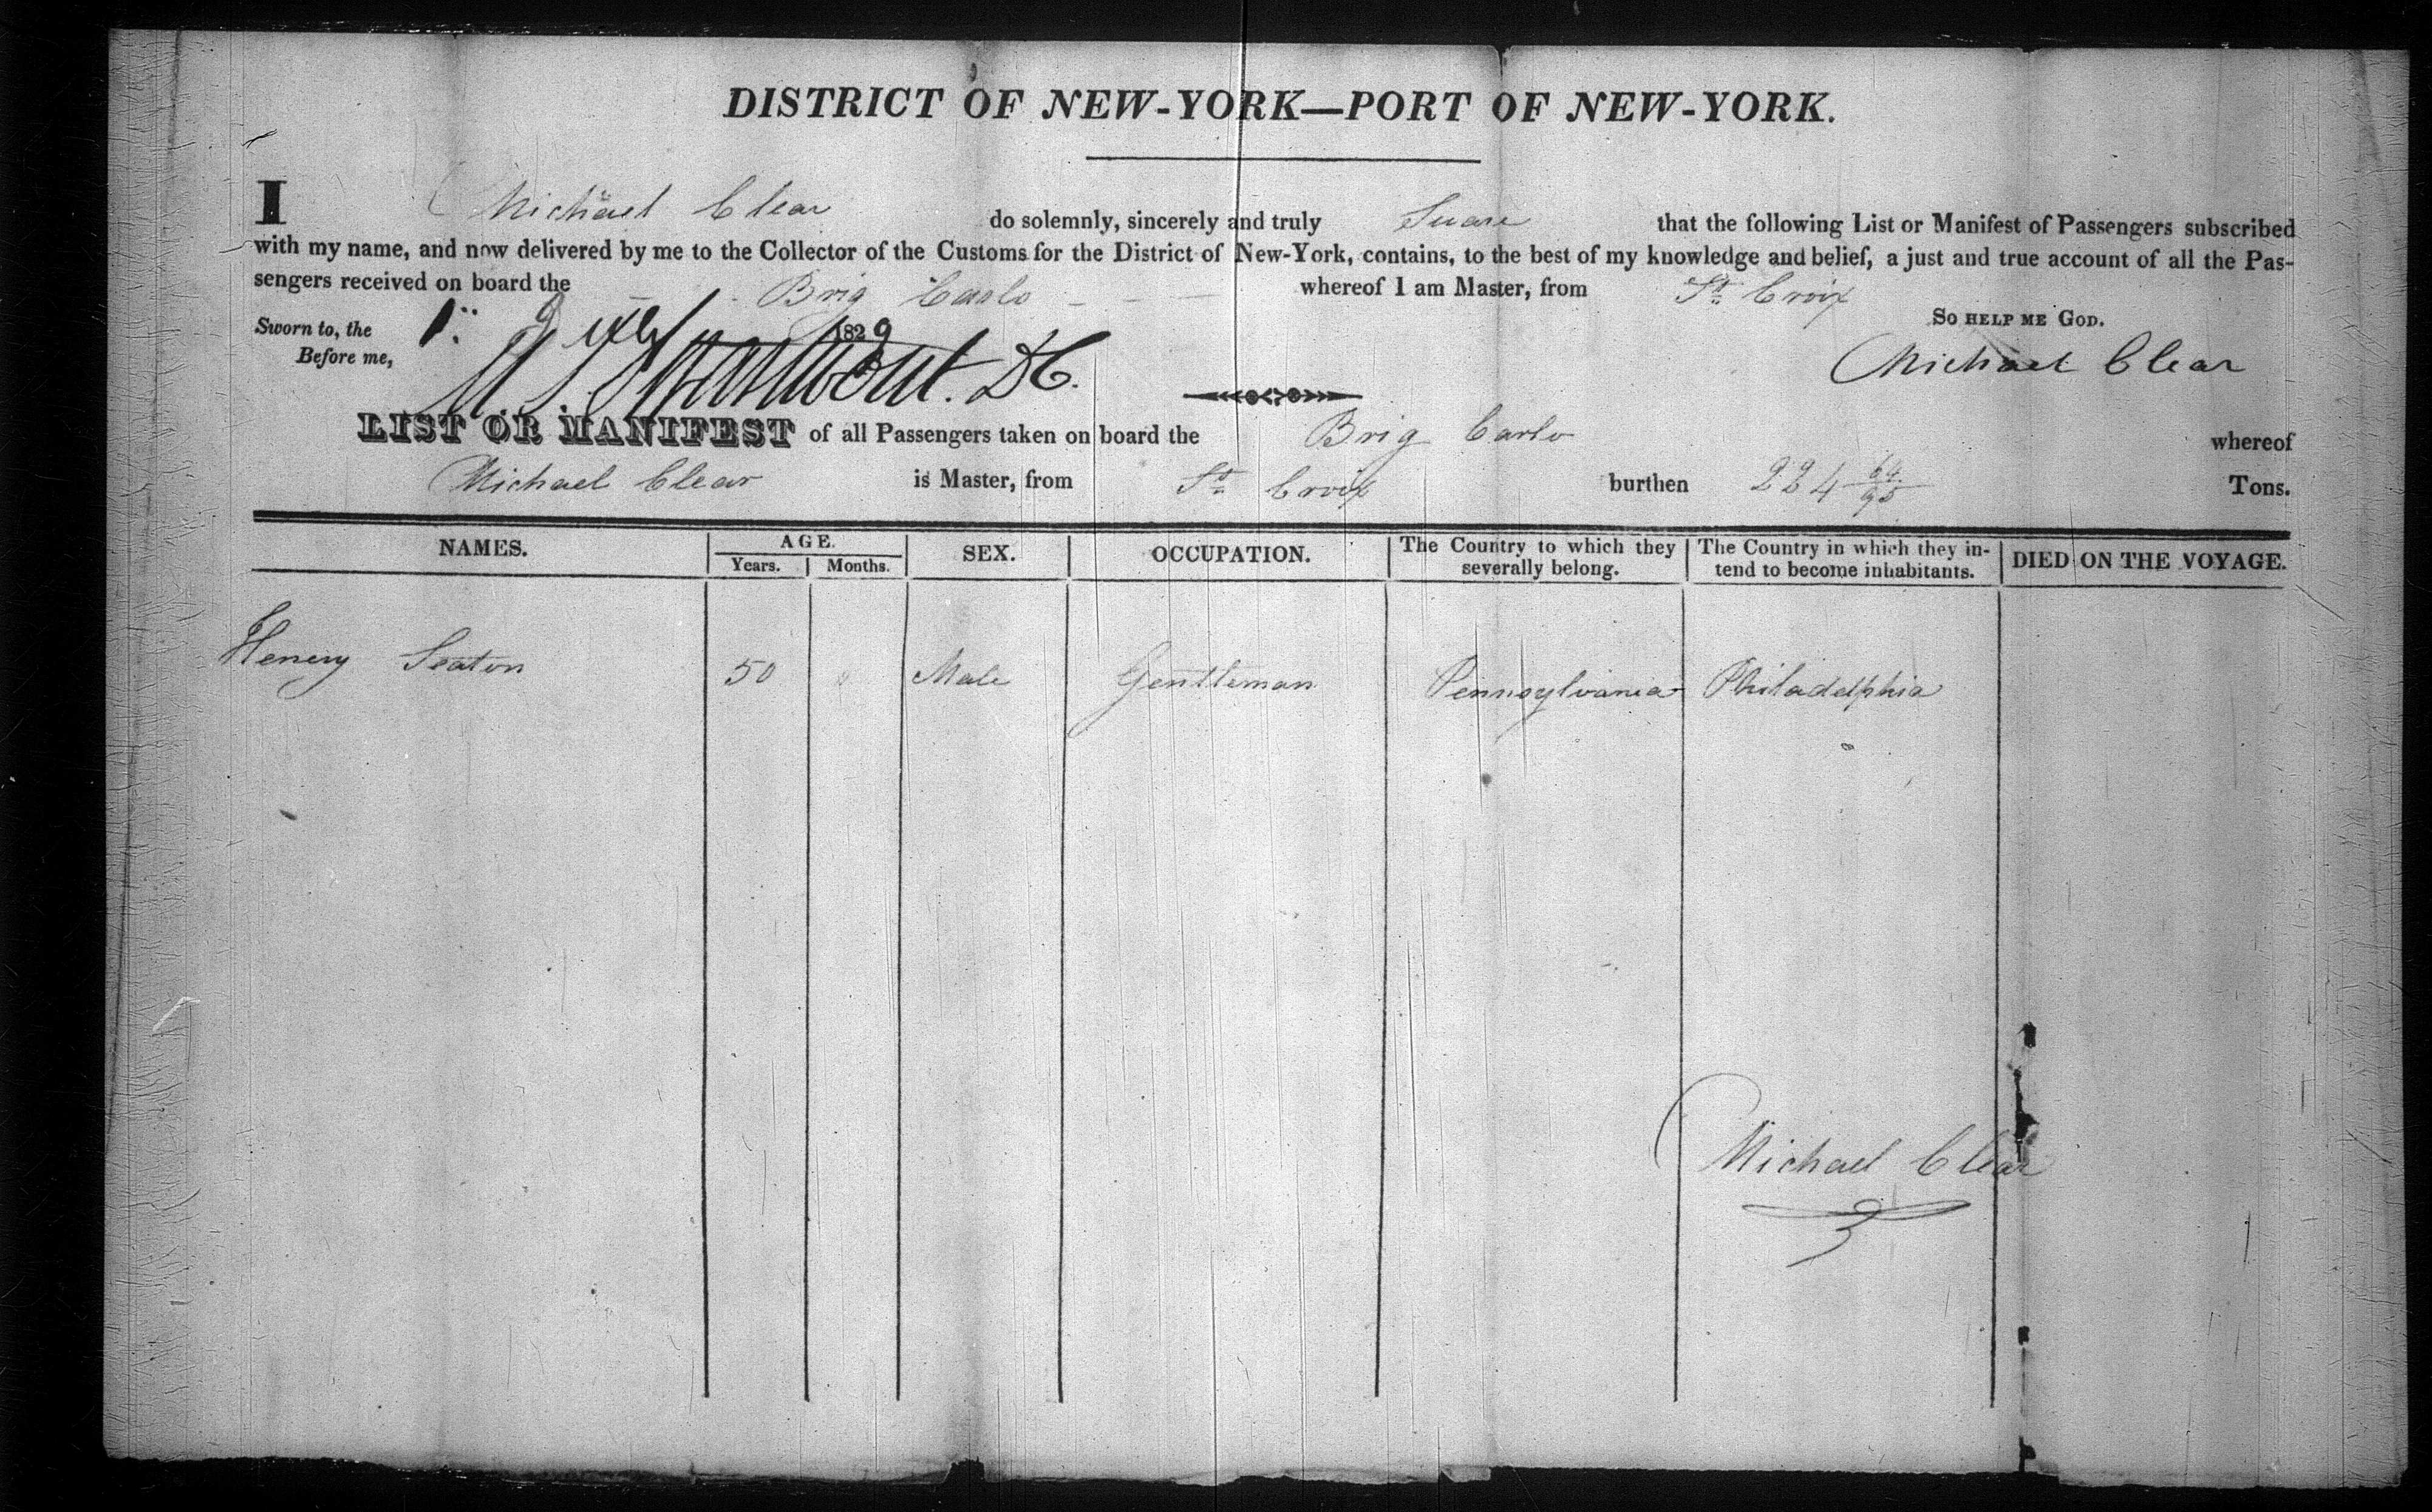 DISTRICT OF NEW-YORK—PORT OF NEW-YORK.
I Michael Clear do solemnly, sincerely and truly Suare that the following List or Manifest of Passengers subscribed
with my name, and now delivered by me to the Collector of the Customs for the District of New-York, contains, to the best of my knowledge and belief, a just and true account of all the Pas-
sengers received on board the Brig Carlo whereof I am Master, from St Croix
Sworn to, the 1 1829 So help me God.
Before me, Michael Clear
LIST OR MANIFEST of all Passengers taken on board the Brig Carlo whereof
Michael Clear is Master, from St Croix burthen 224 64/95 Tons.
NAMES. AGE. Years. Months. SEX. OCCUPATION. The Country to which they severally belong. The Country in which they in-tend to become inhabitants. DIED ON THE VOYAGE.
Henery Seaton 50 " Male Gentleman Pennsylvania Philadelphia
Michael Clear